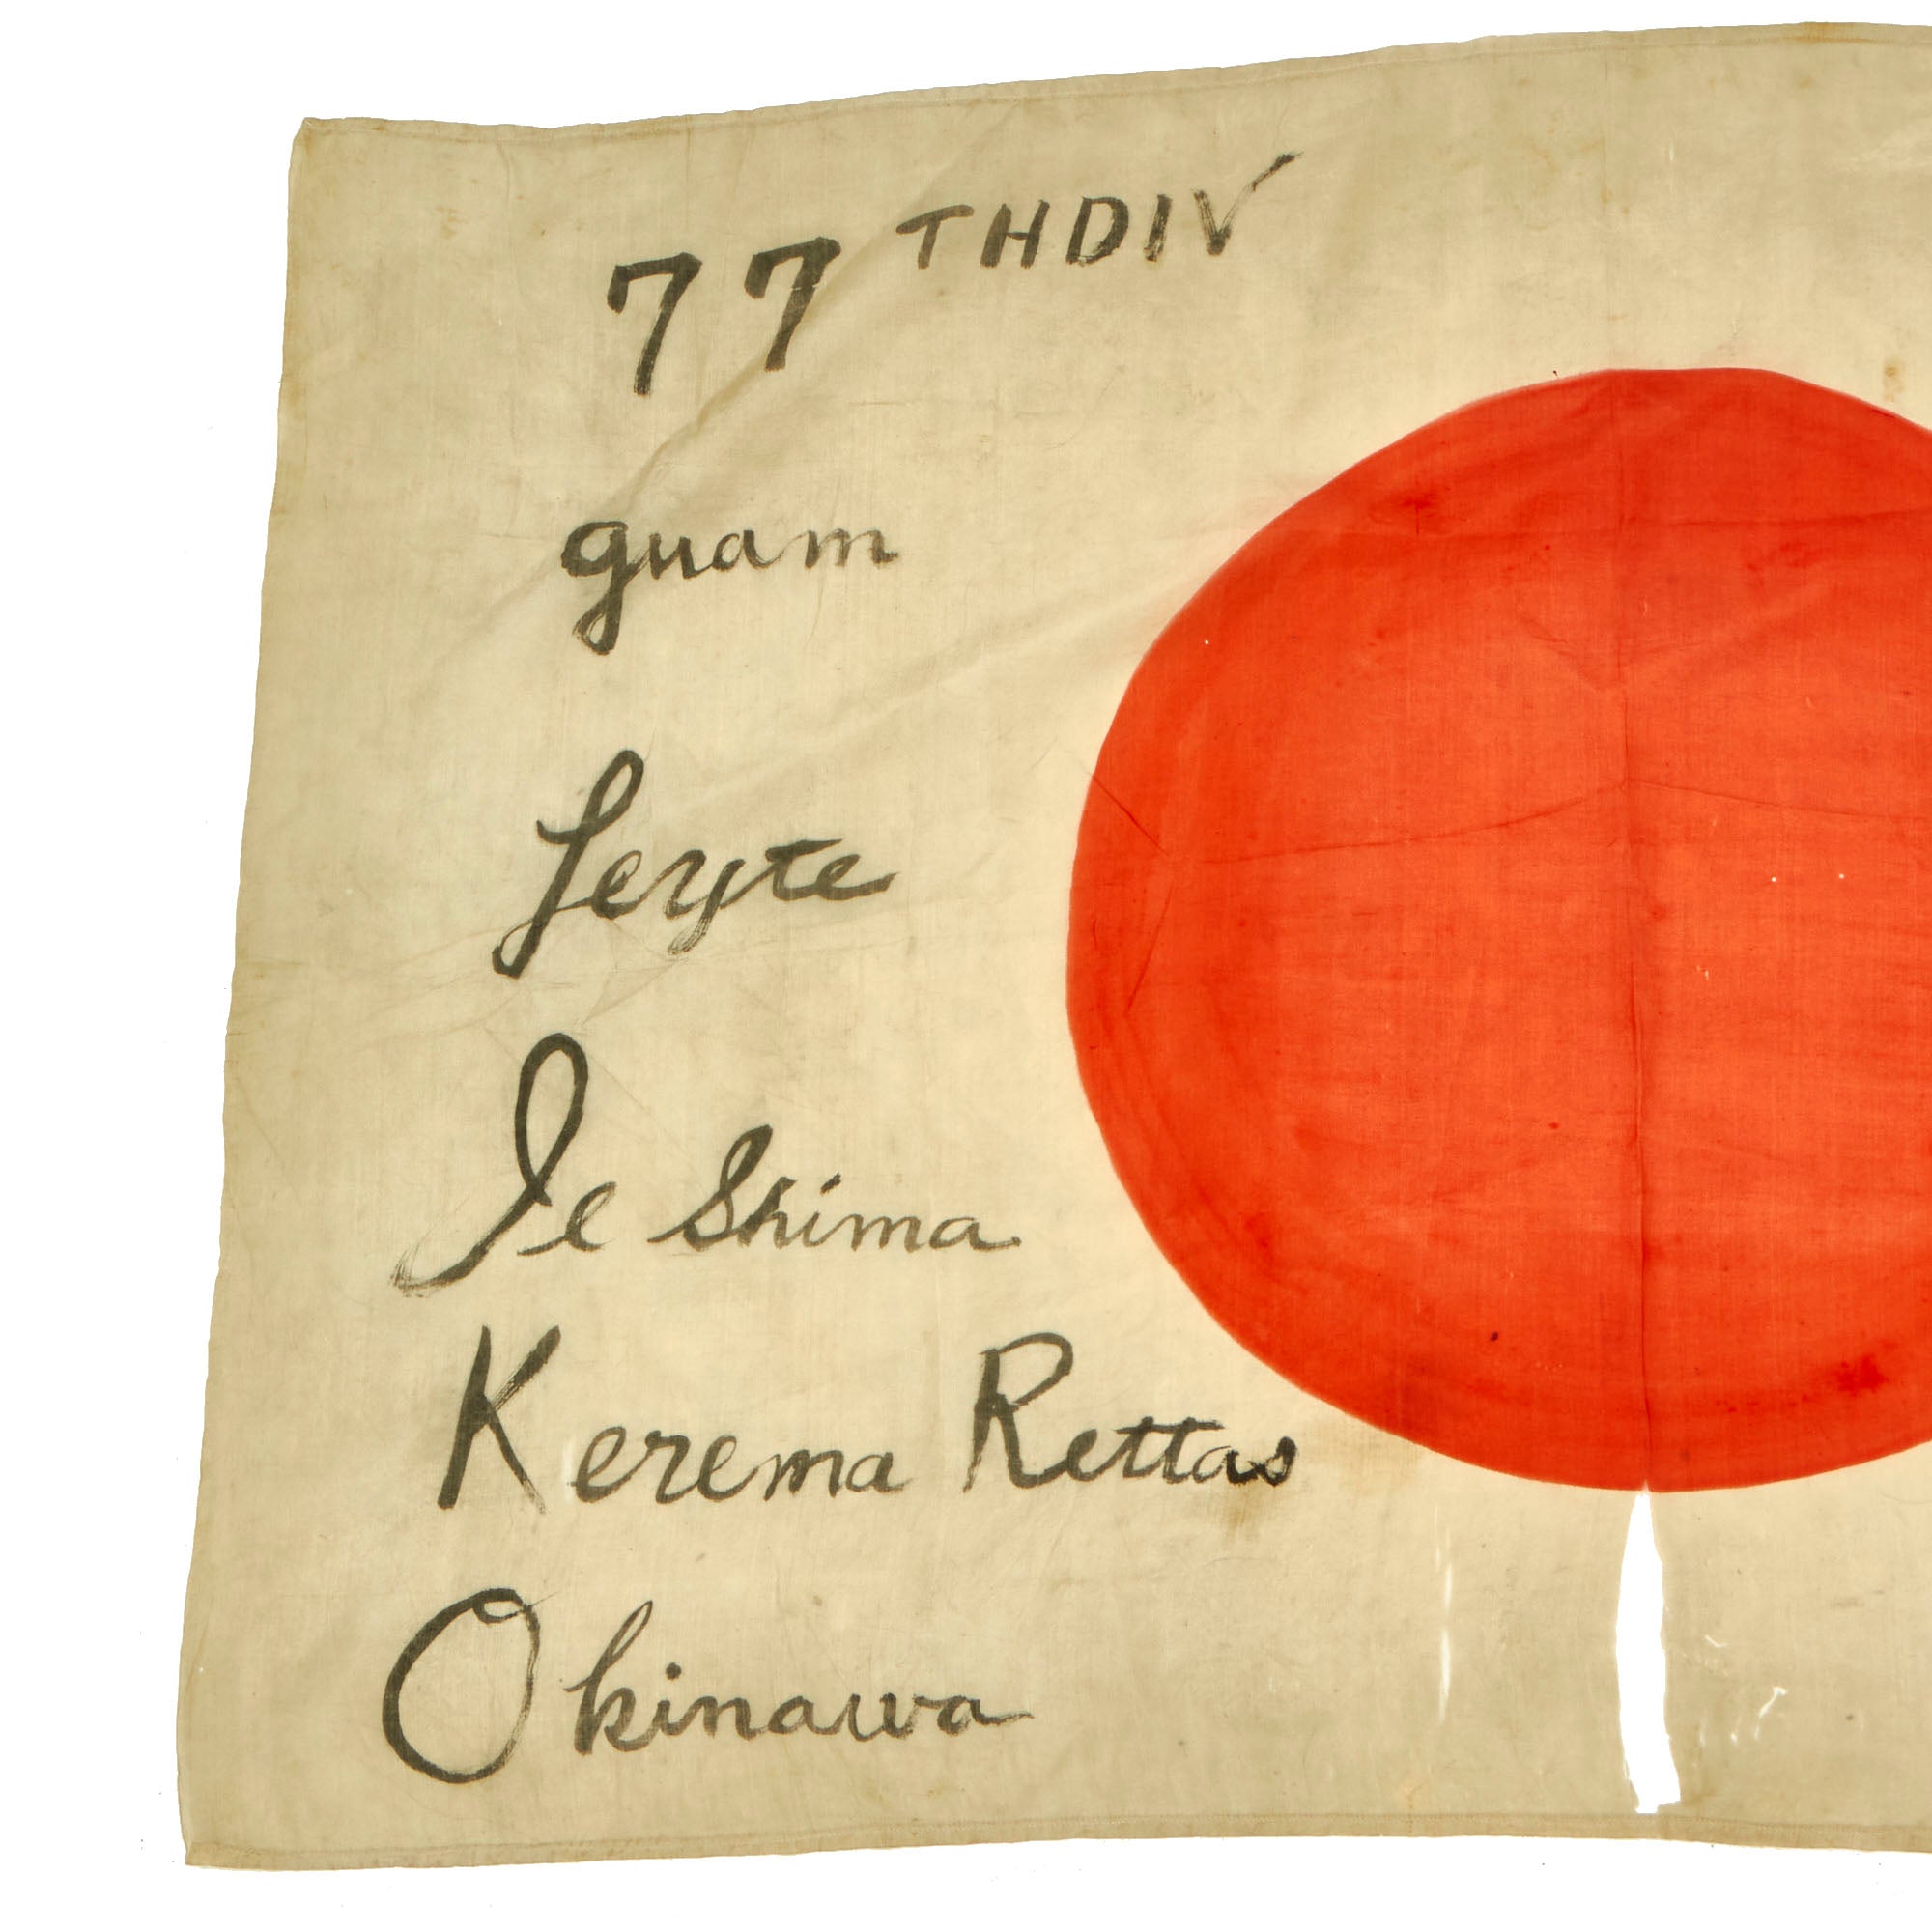 77 THDIV
guam
Leyte
Ie Shima
Kerema Rettas
Okinawa